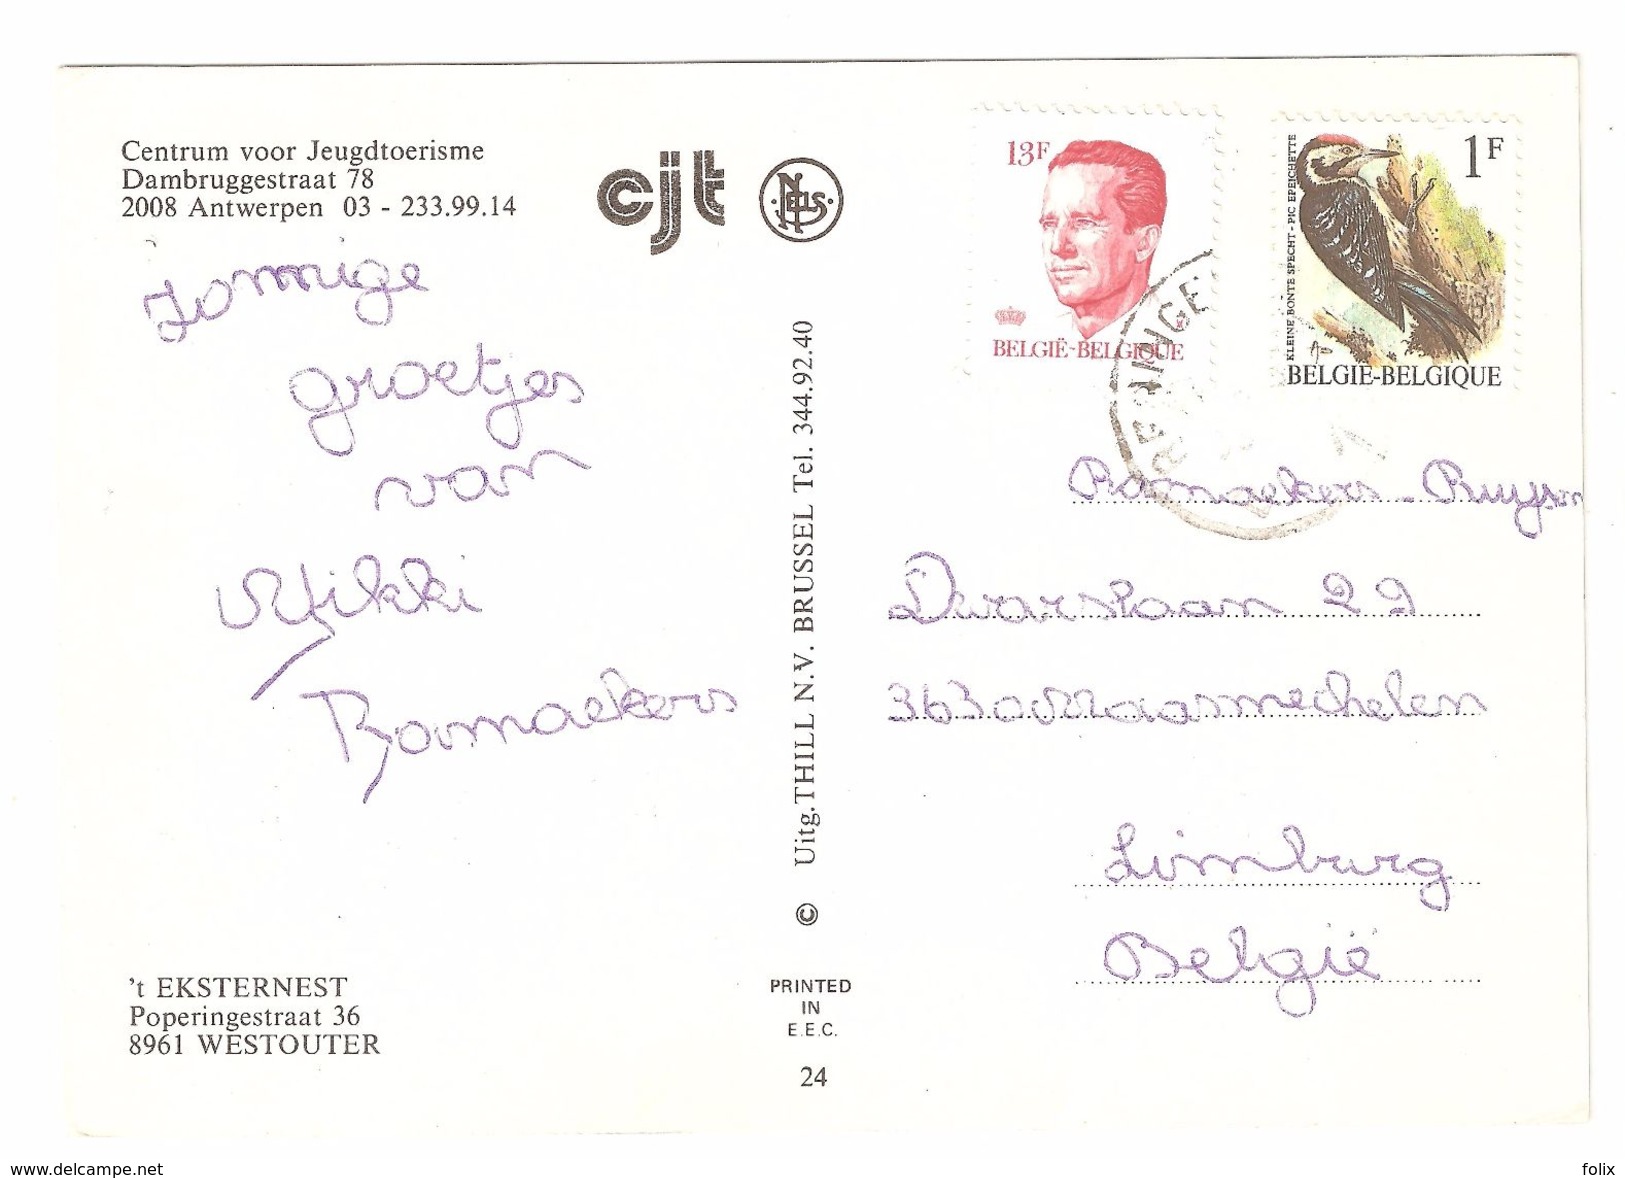 Centrum voor Jeugdtoerisme
Dambruggestraat 78
2008 Antwerpen 03 - 233.99.14
cjt
NELS
Zonnige
groetjes
van
Ramaekers
't EKSTERNEST
Poperingestraat 36
8961 WESTOUTER
© Uitg. THILL N.V. BRUSSEL Tel. 344.92.40
PRINTED
IN
E.E.C.
24
13F
BELGIË-BELGIQUE
1F
KLEINE BONTE SPECHT - PIC EPEICHETTE
BELGIË-BELGIQUE
Ramaekers -
Dwarslaan 29
3630 Maasmechelen
Limburg
België
www.delcampe.net
folix